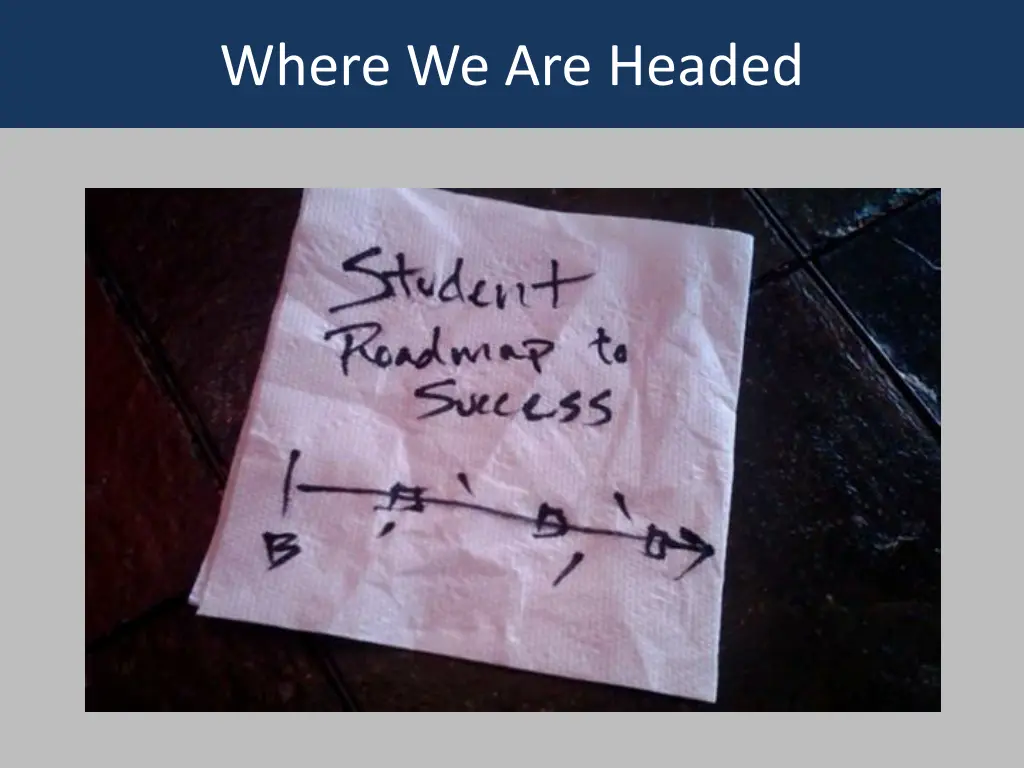 Where We Are Headed
Student
Roadmap to
Success
B